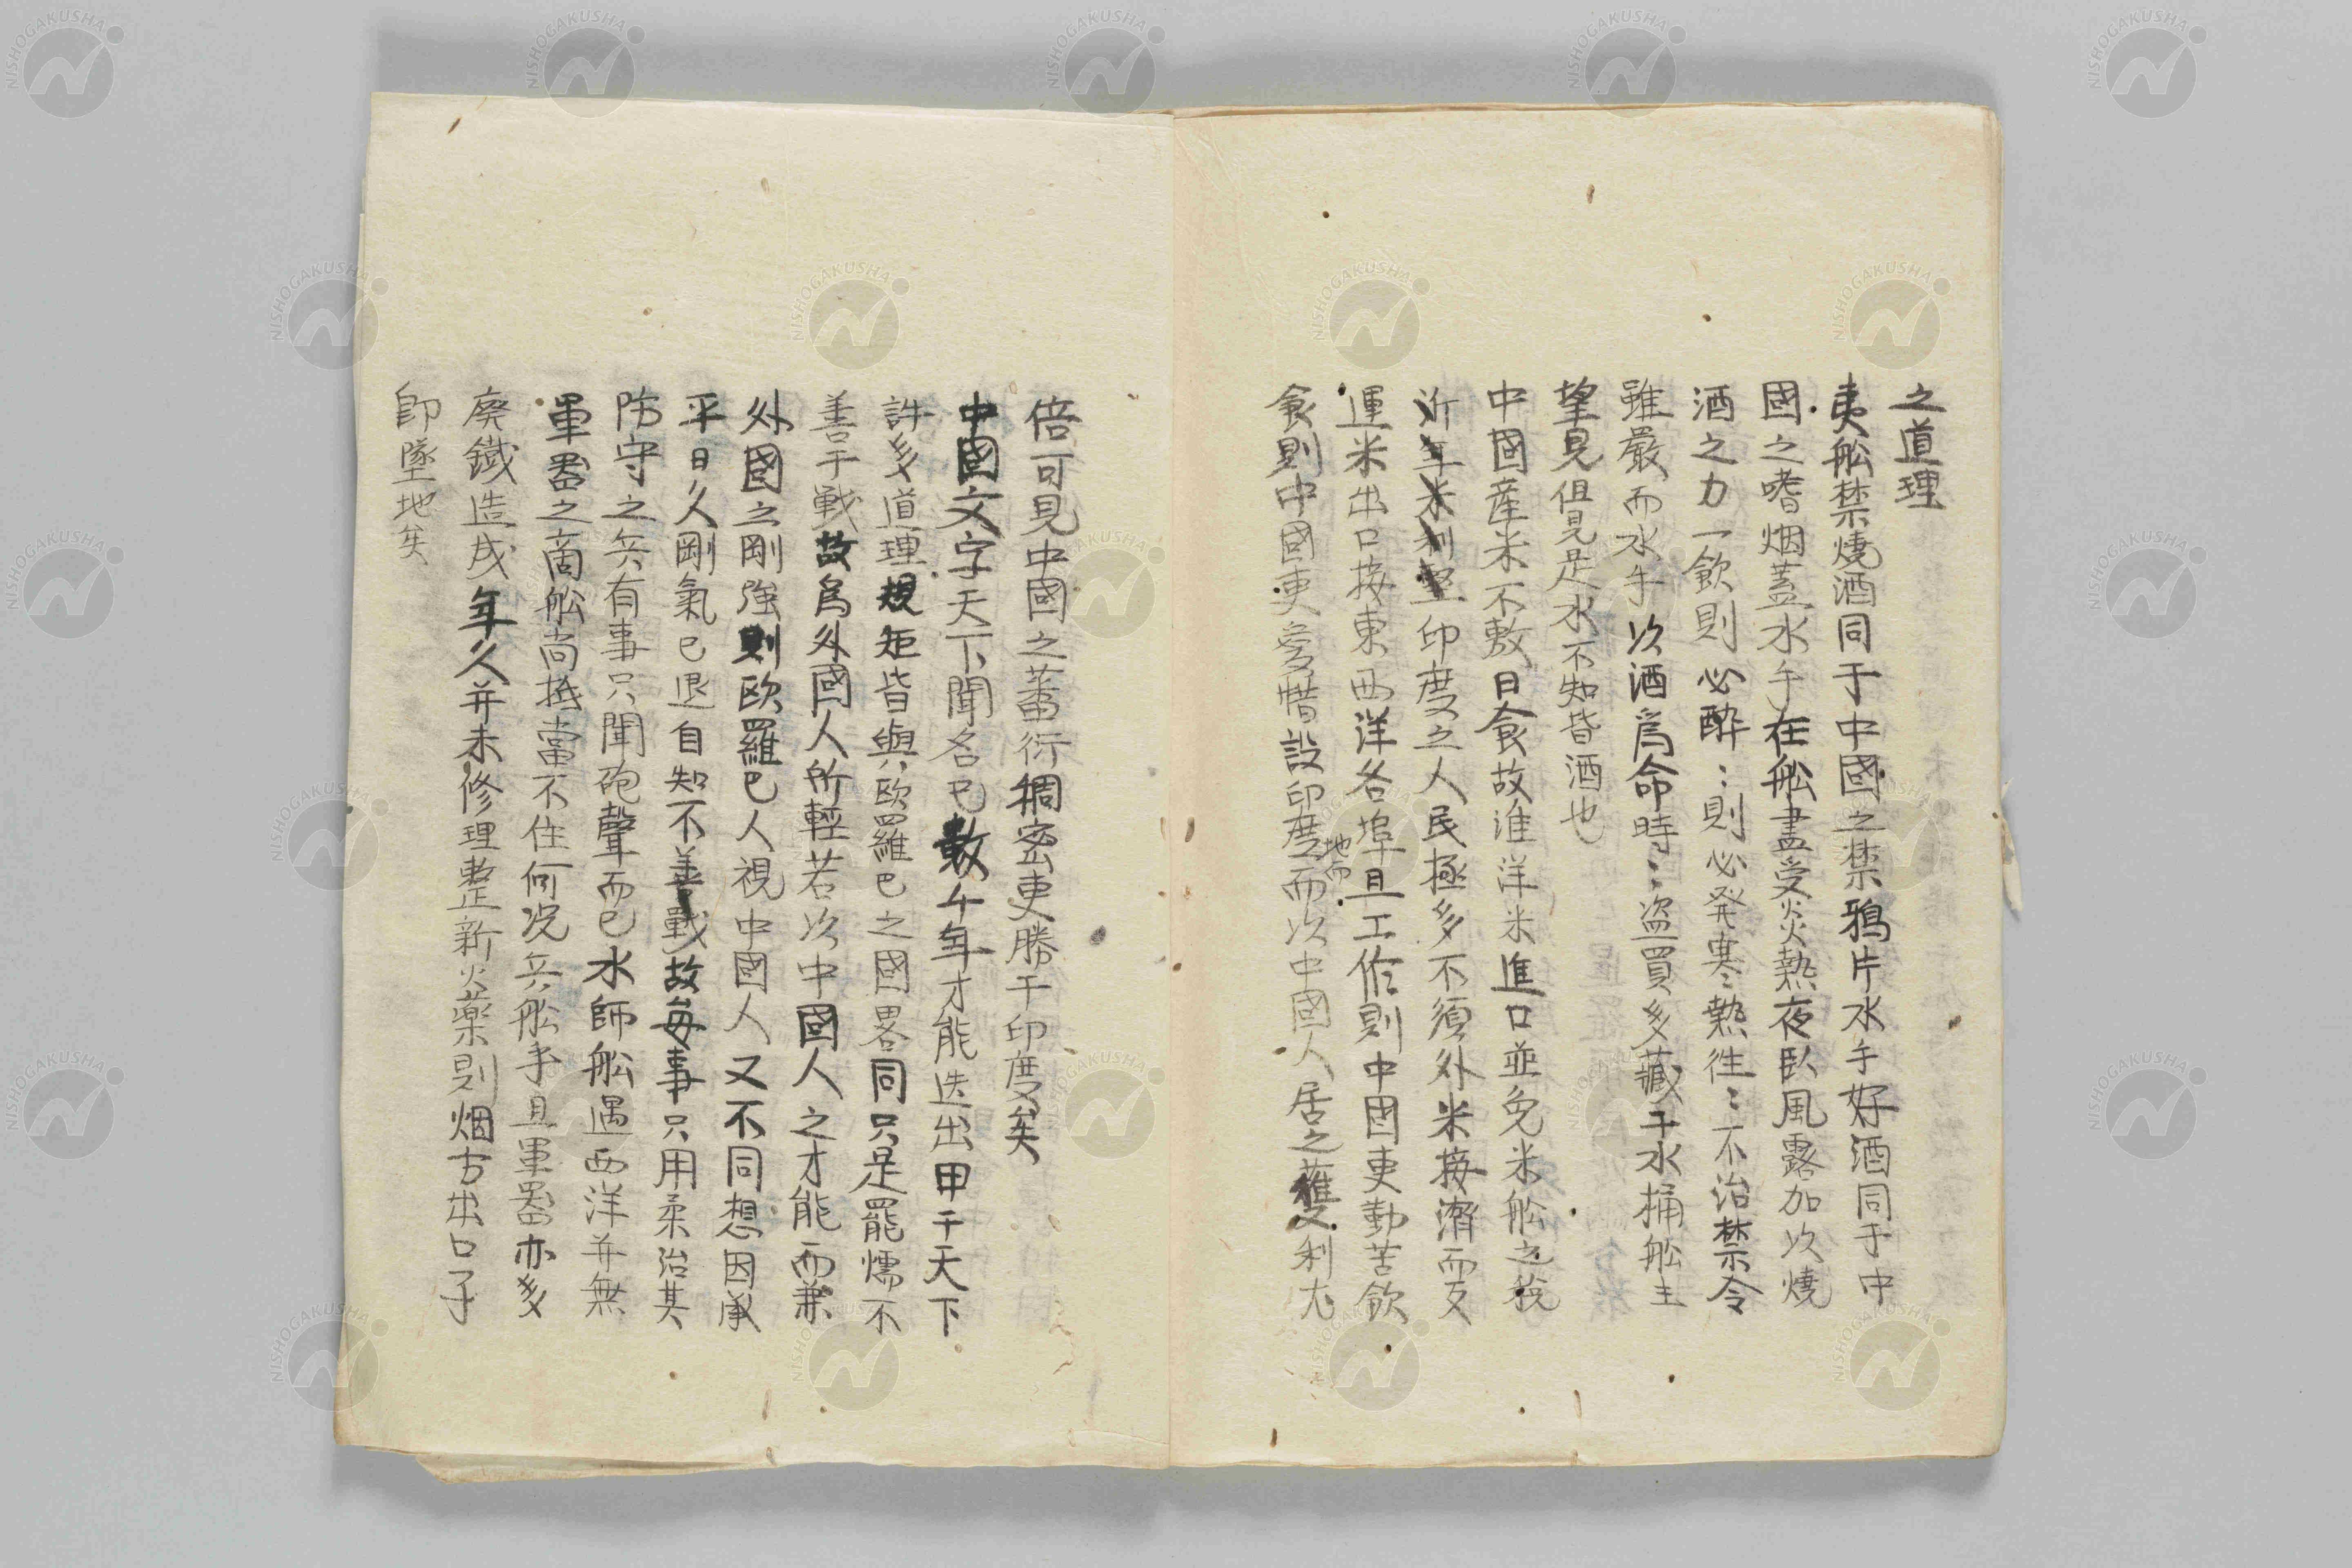 之道理
夷舩禁燒酒同于中國之禁鴉片水手好酒同于中
國之嗜烟蓋水手在舩盡受炎熱夜臥風露加以燒
酒之力一飲則必醉〻則必発寒〻熱徃〻不治禁令
雖嚴而水手以酒爲命時〻盗買多藏于水桶舩主
望見但見是水不知皆酒也
中國産米不敷日食故准洋米進口並免米舩之税
近年米利堅印度之人民極多不須外米接濟而反
運米出口接東西洋各埠且工作則中國更勤苦飲
食則中國更愛惜設印度地而以中國人居之蕹利尤
倍可見中國之蕃衍稠密更勝于印度矣
中國文字天下聞名已數千年才能迭出甲于天下
許多道理規矩皆與欧羅巴之國畧同只是罷懦不
善于戰故爲外國人所輕若以中國人之才能而兼
外國之剛強則欧羅巴人視中國人又不同想因承
平日久剛氣已退自知不善戰故每事只用柔治其
防守之兵有事只聞砲聲而已水師舩遇西洋并無
軍噐之啇舩尚抵當不住何况兵舩乎且軍噐亦多
廃鐵造成年久并未修理整新火藥則烟方出口子
即墜地矣
NISHOGAKUSHA